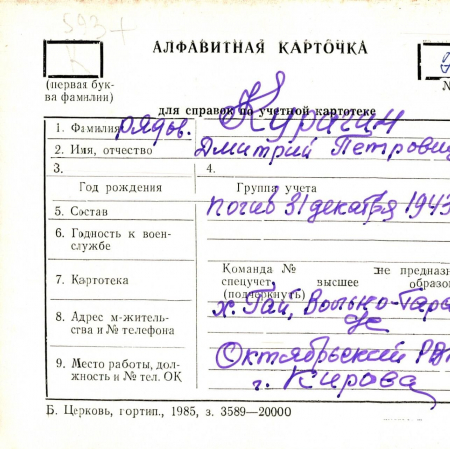 593+
К
АЛФАВИТНАЯ КАРТОЧКА
(первая бук-
ва фамилии)
№
для справок по учетной картотеке
1. Фамилия рядов. Курагин
2. Имя, отчество Дмитрий Петрович
3.
4.
Год рождения
Группа учета
5. Состав погиб 31 декабря 1943
6. Годность к воен-
службе
7. Картотека
Команда № не предназн
спецучет, высшее образо
(подчеркнуть)
8. Адрес м-житель-
ства и № телефона
х. Гай,
9. Место работы, дол-
жность и № тел. ОК
Октябрьский РВК
г. Кирова
Б. Церковь, гортип., 1985, з. 3589—20000